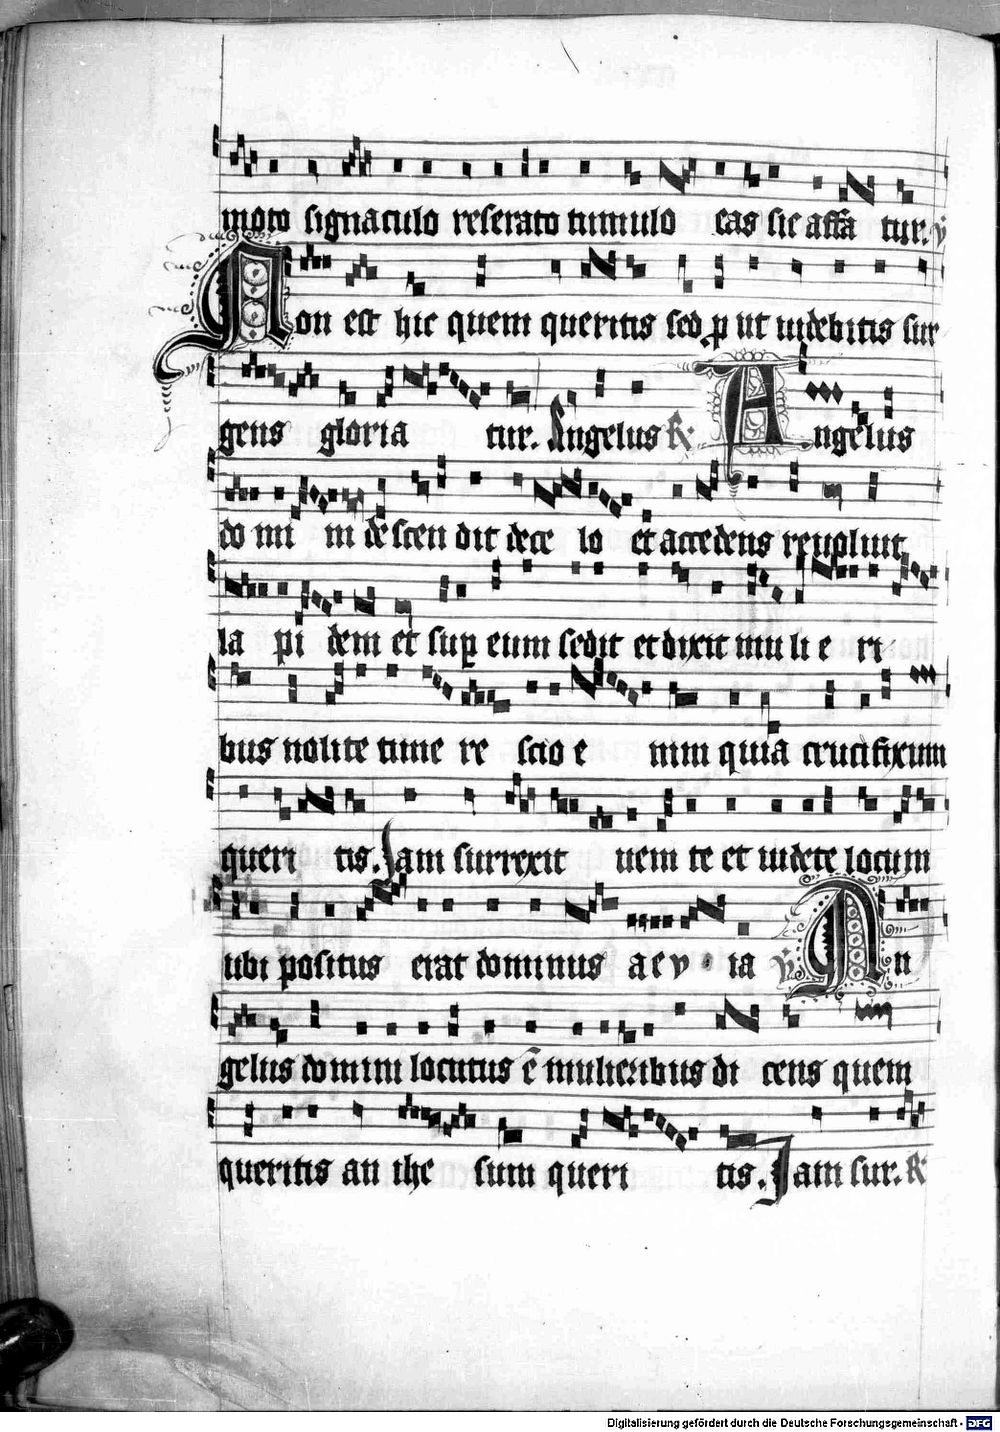 moto signaculo reserato tumulo eas sic affa tur. ℣
Non est hic quem queritis sed p ut uidebitis sur
gens gloria tur. Angelus ℟ Angelus
do mi ni descen dit de ce lo et accedens reuoluit
la pi dem et sup eum sedit et dixit mu li e ri
bus nolite time re scio e nim quia crucifixum
queri tis. Jam surrexit uenite et uidete locum
ubi positus erat dominus a e v ia ℣ An
gelus domini locutus ē mulieribus di cens quem
queritis an ihe sum queri tis. Jam sur. ℟
Digitalisierung gefördert durch die Deutsche Forschungsgemeinschaft - DFG